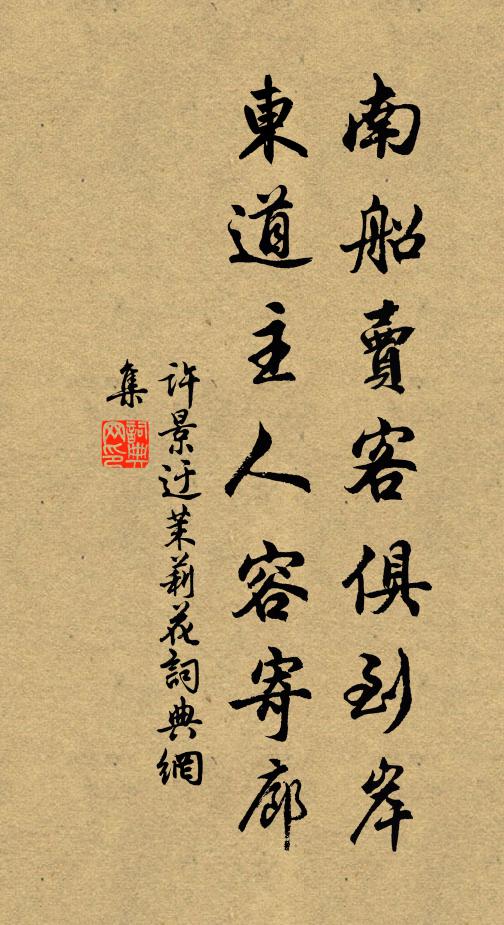 南船賣客俱到岸
東道主人容寄廊
許景迂茉莉花詞典網
集
詞典
网印